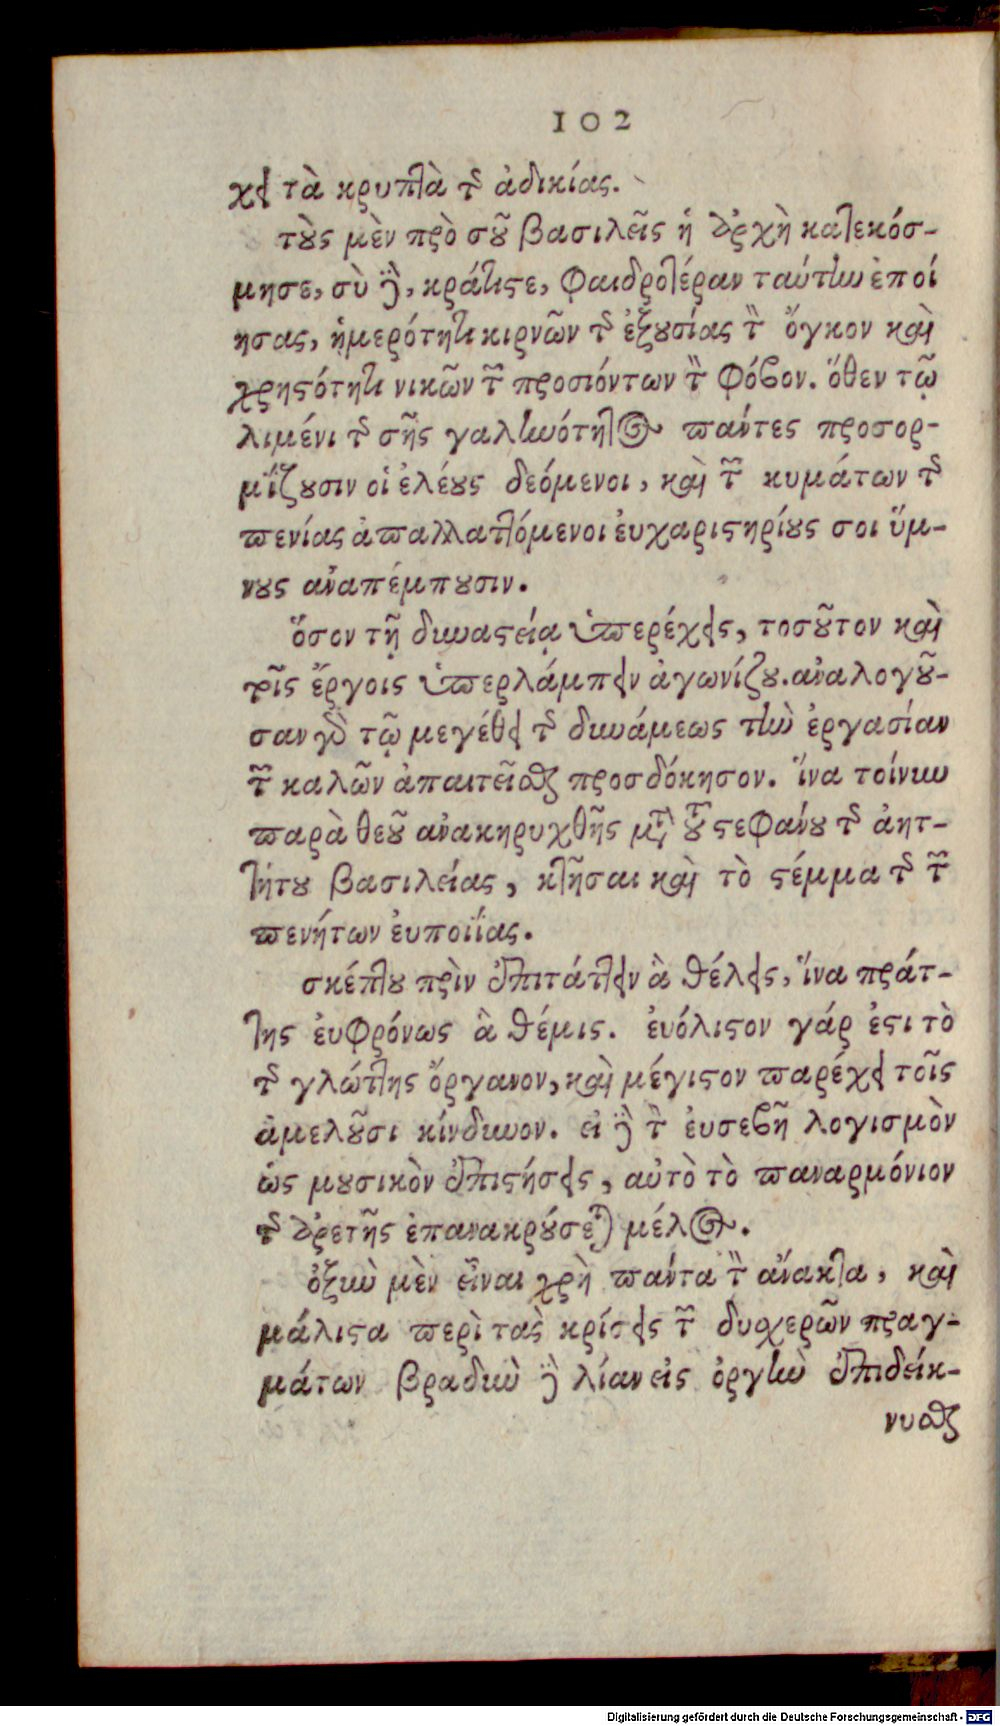 102
χει τὰ κρυπτὰ τῆς ἀδικίας.
τοὺς μὲν πρὸ σοῦ βασιλεῖς ἡ ἀρχὴ κατεκόσ-
μησε, σὺ δὲ, κράτιστε, φαιδροτέραν ταύτην ἐποί
ησας, ἡμερότητι κιρνῶν τῆς ἐξουσίας τὸν ὄγκον καὶ
χρηστότητι νικῶν τῶν προσιόντων τὸν φόβον. ὅθεν τῷ
λιμένι τῆς σῆς γαλωότητος πάντες προσορ-
μίζουσιν οἱ ἐλέους δεόμενοι, καὶ τῶν κυμάτων τῆς
πενίας ἀπαλλαττόμενοι εὐχαριστηρίους σοι ὕμ-
νους ἀναπέμπουσιν.
ὅσον τῇ δυναστείᾳ ὑπερέχεις, τοσοῦτον καὶ
τοῖς ἔργοις ὑπερλάμπειν ἀγωνίζου. ἀναλογοῦ-
σαν γὰρ τῷ μεγέθει τῆς δυνάμεως τὴν ἐργασίαν
τῶν καλῶν ἀπαιτεῖσθαι προσδόκησον. ἵνα τοίνυν
παρὰ θεοῦ ἀνακηρυχθῇς μετὰ τοῦ στεφάνου τῆς ἀητ-
τήτου βασιλείας, κτῆσαι καὶ τὸ στέμμα τῆς τῶν
πενήτων εὐποιΐας.
σκέπτου πρὶν ἐπιτάττειν ἃ θέλεις, ἵνα πράτ-
της εὐφρόνως ἃ θέμις. εὐόλιστον γάρ ἐστι τὸ
τῆς γλώττης ὄργανον, καὶ μέγιστον παρέχει τοῖς
ἀμελοῦσι κίνδυνον. εἰ δὲ τὸν εὐσεβῆ λογισμὸν
ὡς μουσικὸν ἐπιστήσεις, αὐτὸ τὸ παναρμόνιον
τῆς ἀρετῆς ἐπανακρούσεται μέλος.
ὀξὺν μὲν εἶναι χρὴ πάντα τὸν ἄνακτα, καὶ
μάλιστα περὶ τὰς κρίσεις τῶν δυσχερῶν πραγ-
μάτων βραδὺν δὲ λίαν εἰς ὀργὴν ἐπιδείκ-
νυσθαι
Digitalisierung gefördert durch die Deutsche Forschungsgemeinschaft - DFG